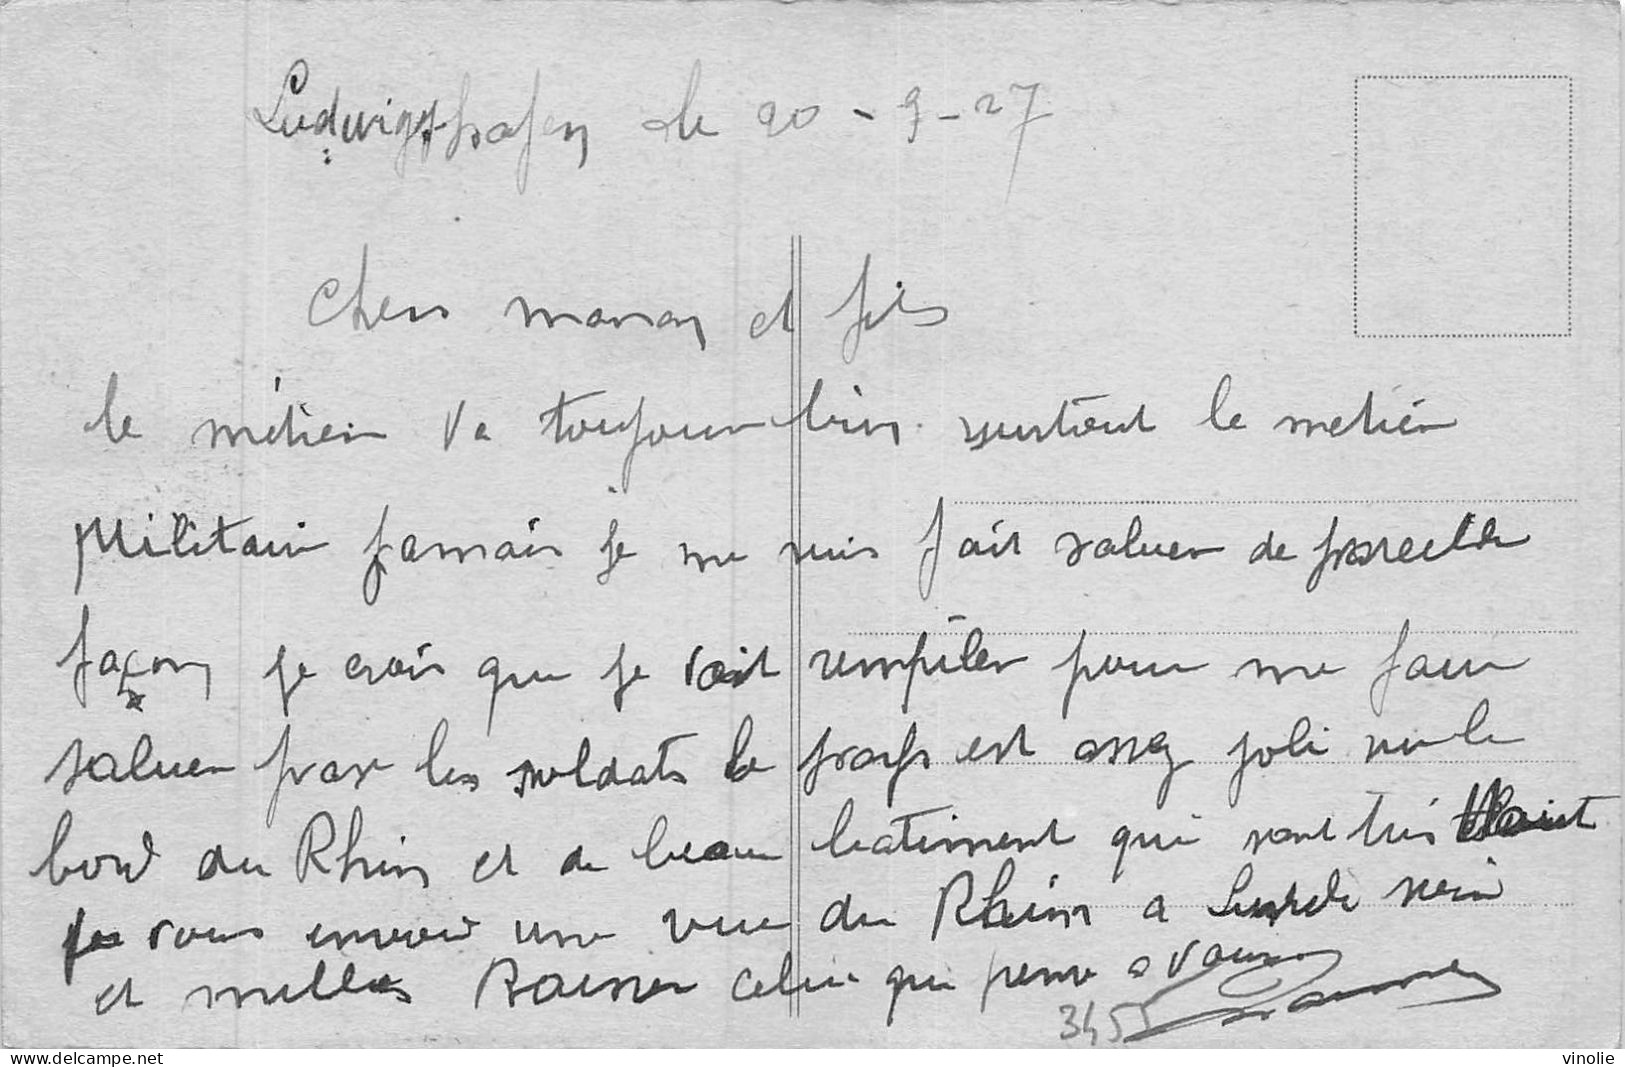 Ludwigshafen le 20-9-27
Chers maman et fils
le métier va toujours bien surtout le metiér
Militair jamais je me suis fait saluer de pareille
façon je crois que je vait rempiler pour me faire
saluer par les soldats le pays est assez joli sur le
bord du Rhin et de beau batiment qui sont tres
je vous envoie une vue du Rhin a
et milles Baiser celui qui pense a vous
3455
delcampe.net
vinolie